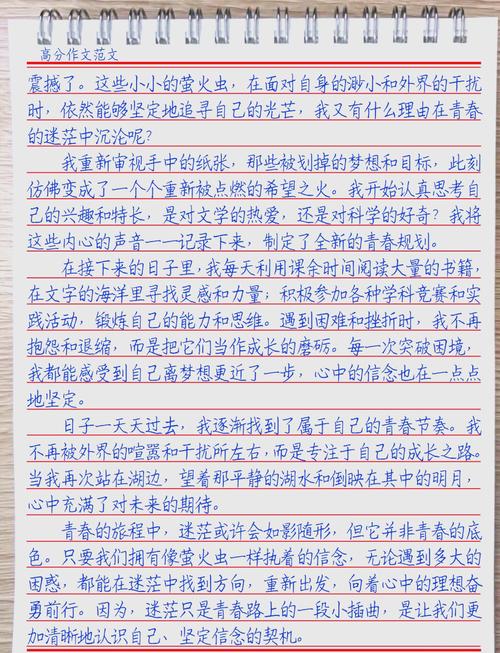 高分作文范文
震撼了。这些小小的萤火虫，在面对自身的渺小和外界的干扰
时，依然能够坚定地追寻自己的光芒，我又有什么理由在青春
的迷茫中沉沦呢？
我重新审视手中的纸张，那些被划掉的梦想和目标，此刻
仿佛变成了一个个重新被点燃的希望之火。我开始认真思考自
己的兴趣和特长，是对文学的热爱，还是对科学的好奇？我将
这些内心的声音一一记录下来，制定了全新的青春规划。
在接下来的日子里，我每天利用课余时间阅读大量的书籍，
在文字的海洋里寻找灵感和力量；积极参加各种学科竞赛和实
践活动，锻炼自己的能力和思维。遇到困难和挫折时，我不再
抱怨和退缩，而是把它们当作成长的磨砺。每一次突破困境，
我都能感受到自己离梦想更近了一步，心中的信念也在一点点
地坚定。
日子一天天过去，我逐渐找到了属于自己的青春节奏。我
不再被外界的喧嚣和干扰所左右，而是专注于自己的成长之路。
当我再次站在湖边，望着那平静的湖水和倒映在其中的明月，
心中充满了对未来的期待。
青春的旅程中，迷茫或许会如影随形，但它并非青春的底
色。只要我们拥有像萤火虫一样执着的信念，无论遇到多大的
困惑，都能在迷茫中找到方向，重新出发，向着心中的理想奋
勇前行。因为，迷茫只是青春路上的一段小插曲，是让我们更
加清晰地认识自己、坚定信念的契机。